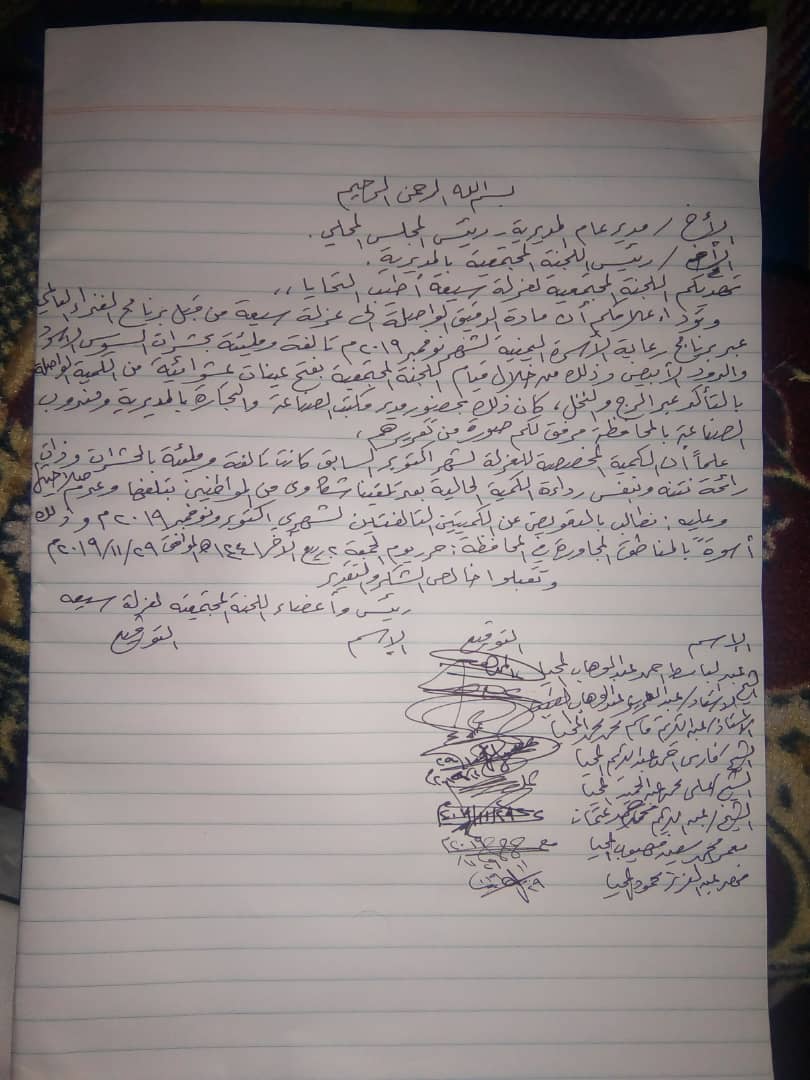 بسم الله الرحمن الرحيم
الأخ / مدير عام المديرية - رئيس المجلس المحلي .
الأخ / رئيس اللجنة المجتمعية بالمديرية .
تهديكم اللجنة المجتمعية لعزلة سيعة أطيب التحايا ،،
ونود اعلامكم أن مادة الدقيق الواصلة الى عزلة سيعة من قبل برنامج الغذاء العالمي
عبر برنامج رعاية الأسرة اليمنية لشهر نوفمبر ٢٠١٩م تالفة ومليئة بحشرات السوس الأسود
والدود الأبيض وذلك من خلال قيام اللجنة المجتمعية بفتح عينات عشوائية من الكمية الواصلة
بالتأكد عبر الرج والنخل ، كان ذلك بحضور مدير مكتب الصناعة والتجارة بالمديرية ومندوب
الصناعة بالمحافظة مرفق لكم صورة من تقريرهم ،
علماً أن الكمية المخصصة للعزلة لشهر اكتوبر السابق كانت تالفة ومليئة بالحشرات وذات
رائحة نتنه وبنفس رداءة الكمية الحالية بعد تلقينا شكاوى من المواطنين بتلفها وعدم صلاحيتها
وعليه : نطالب بالتعويض عن الكميتين التالفتين لشهري اكتوبر ونوفمبر ٢٠١٩م وذلك
أسوة بالمناطق المجاورة في المحافظة : حرر يوم الجمعة ٢ ربيع الآخر ١٤٤١هـ الموافق ٢٠١٩/١١/٢٩م
وتقبلوا خالص الشكر والتقدير
رئيس وأعضاء اللجنة المجتمعية لعزلة سيعه
الإسم التوقيع الإسم التوقيع
عبدالباسط احمد عبدالوهاب المحيا
الاستاذ / عبدالوهاب
الاستاذ / عبدالكريم قاسم محمد محمد المحيا
الشيخ / فارس احمد عبدالكريم المحيا
الشيخ / علي محمد عبدالحميد المحيا
الشيخ / عبدالكريم محمد عثمان ٢٠١٩/١١/٢٩
معمر محمد سعيد مهيوب المحيا
عبدالعزيز محمود المحيا